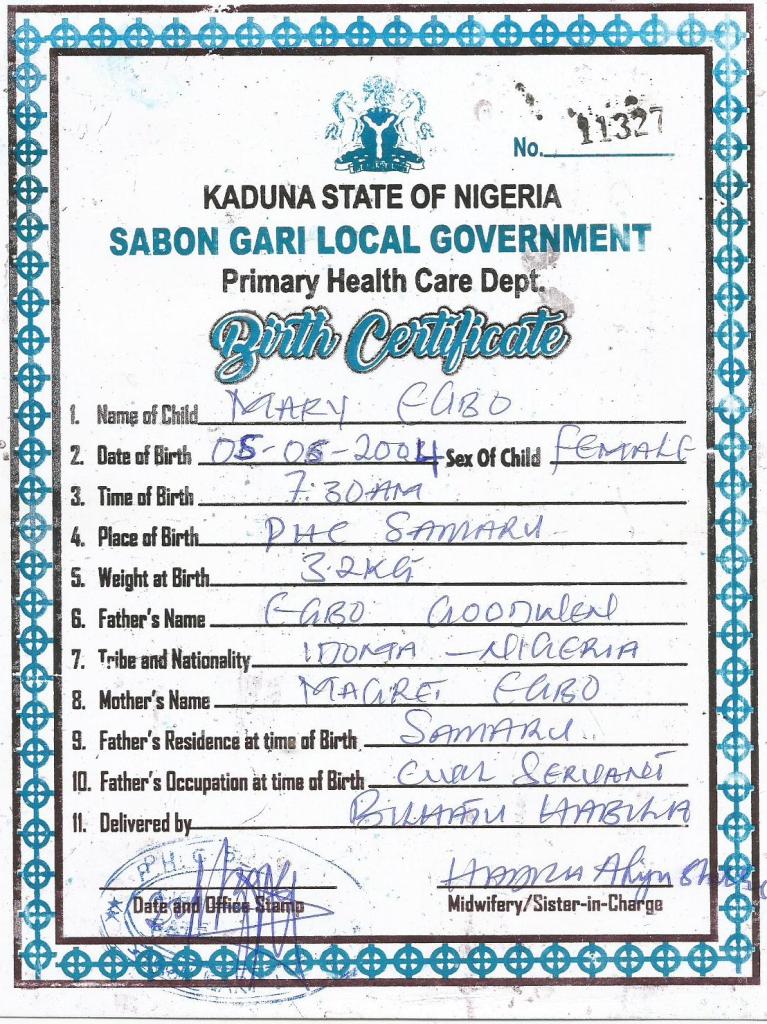 No. 11327
KADUNA STATE OF NIGERIA
SABON GARI LOCAL GOVERNMENT
Primary Health Care Dept.
Birth Certificate
1. Name of Child MARY EGBO
2. Date of Birth 05-05-2004 Sex Of Child FEMALE
3. Time of Birth 7:30AM
4. Place of Birth PHC SAMARU
5. Weight at Birth 3.2KG
6. Father's Name EGBO GOODWILL
7. Tribe and Nationality IDOMA - NIGERIA
8. Mother's Name MAGRET EGBO
9. Father's Residence at time of Birth SAMARU
10. Father's Occupation at time of Birth CIVIL SERVANT
11. Delivered by HABILA
P.H.C
Date and Office Stamp
Midwifery/Sister-in-Charge